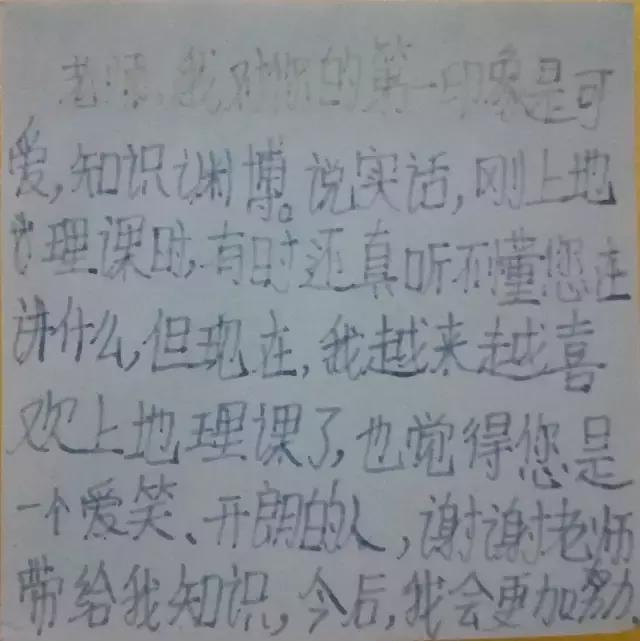 老师,我对你的第一印象是可
爱,知识渊博。说实话,刚上地
理课时,有时还真听不懂您在
讲什么,但现在,我越来越喜
欢上地理课了,也觉得您是
一个爱笑、开朗的人,谢谢老师
带给我知识,今后,我会更加努力